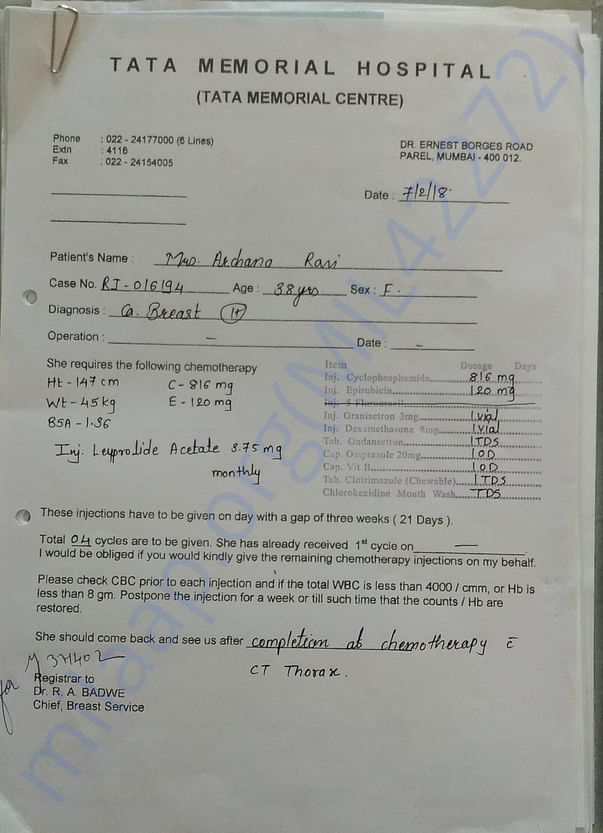 TATA MEMORIAL HOSPITAL
(TATA MEMORIAL CENTRE)
Phone : 022 - 24177000 (6 Lines)
Extn : 4116
Fax : 022 - 24154005
DR. ERNEST BORGES ROAD
PAREL, MUMBAI - 400 012.
Date : 7/2/18.
Patient's Name : Mrs. Archana Ravi
Case No. RJ-016194 Age : 38yrs Sex : F.
Diagnosis : Ca. Breast
Operation : - Date : -
She requires the following chemotherapy
Ht - 147 cm C - 816 mg
Wt - 45 kg E - 120 mg
BSA - 1.36
Inj. Leuprolide Acetate 3.75 mg
monthly
Item Dosage Days
Inj. Cyclophosphamide 816 mg
Inj. Epirubicin 120 mg
Inj. 5 Flourouracil
Inj. Granisetron 3mg 1 vial
Inj. Dexamethasone 8mg 1 vial
Tab. Ondansetron 1 TDS
Cap. Omprazole 20mg 1 OD
Cap. Vit B 1 OD
Tab. Clotrimazole (Chewable) 1 TDS
Chlorohexidine Mouth Wash TDS
These injections have to be given on day with a gap of three weeks ( 21 Days ).
Total 04 cycles are to be given. She has already received 1st cycle on —
I would be obliged if you would kindly give the remaining chemotherapy injections on my behalf.
Please check CBC prior to each injection and if the total WBC is less than 4000 / cmm, or Hb is
less than 8 gm. Postpone the injection for a week or till such time that the counts / Hb are
restored.
She should come back and see us after completion of chemotherapy c̄
CT Thorax.
for Registrar to
Dr. R. A. BADWE
Chief, Breast Service
milaap.org(MIL42272)